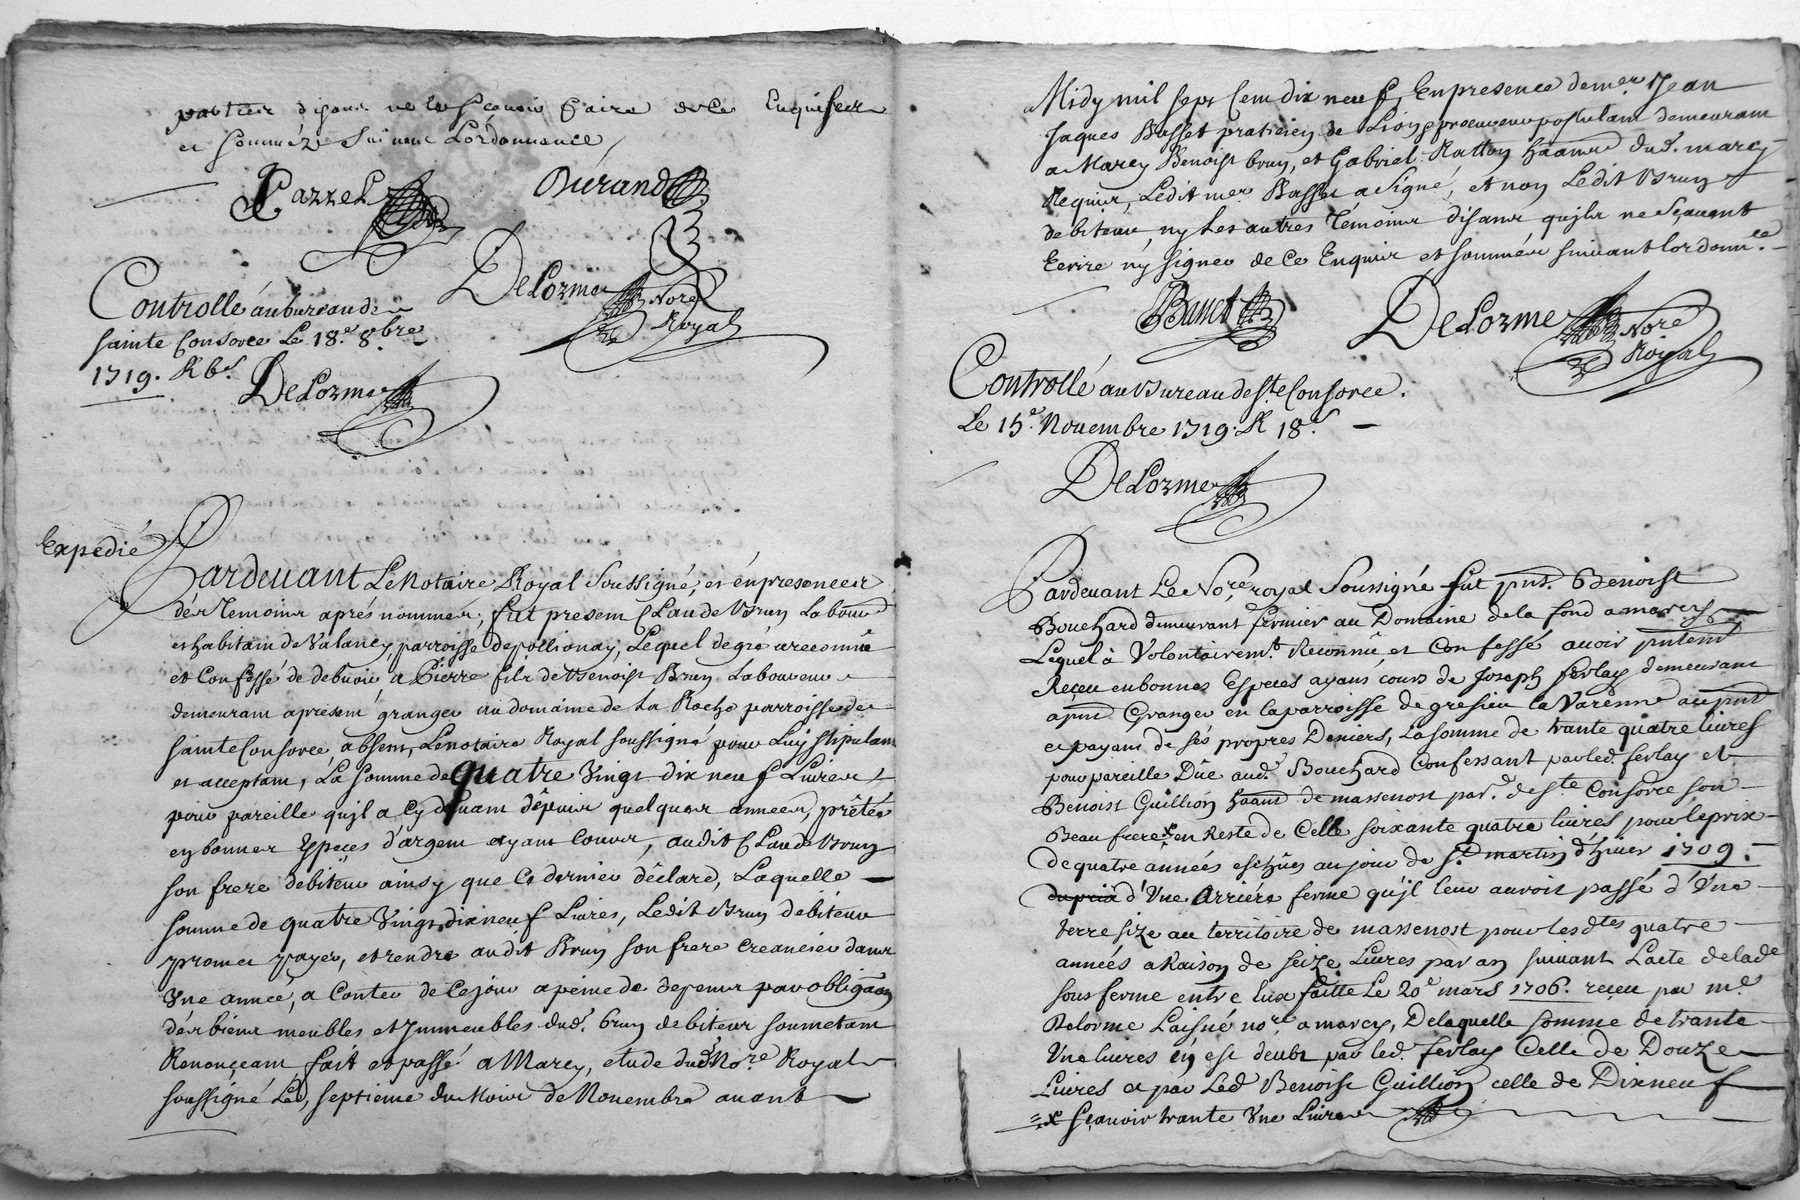 parties disant ne le sçavoir faire de ce Enquis
et sommés suivant L'ordonnance
Parret
Durand
DeLorme
Nore
Royal
Controllé au bureau de
sainte Consorce Le 18e 8bre
1719. R 6s.
DeLorme
Expedié
Pardevant Le Notaire Royal Soussigné, et en presence
des Temoins aprés nommes, fut present Claude Brun Labour
et habitant de Valancy, parroisse de pollionay, Lequel de gré a reconnû
et Confessé de debvoir, a Pierre fils de Benoist Brun Laboureur
demeurant a present granger au domaine de La Roche parroisse de
sainte Consorce, absent, Le notaire Royal soussigné pour Luy stipulant
et acceptant, La somme de quatre vingt dix neuf Livres
pour pareille qu'jl a cy devant depuis quelques années, prêtés
en bonnes Especes d'argent ayant Cours, audit Claude Brun
son frere debiteur ainsy que Ce dernier déclare, Laquelle
somme de quatre vingt dix neuf Livres, Ledit Brun debiteur
promet payer, et rendre audit Brun son frere Creancier dans
Vne année, a Conter de Ce jour a peine de depens par obligaon
des biens meubles et Jmmeubles dud. brun debiteur soumetant
Renonçeant, fait et passé a Marcy, etude dud Nore Royal
soussigné Le septieme du Mois de Novembre avant
Midy mil sept Cent dix neuf, En presence de mer Jean
Jaques Basset praticien de Lion postulant demeurant
a Marcy Benoist brun, et Gabriel Ratton dud. marcy
Requis, Ledit mer Basset a Signé, et non Ledit Brun
debiteur, ny Les autres Témoins disant qu'jls ne Sçavent
Ecrire ny signer de Ce Enquis et sommés suivant Lordonnce
Basset
DeLorme
Nore
Royal
Controllé au Bureau de Ste Consorce.
Le 15e Novembre 1719. R 18s.
DeLorme
Pardevant Le Nore royal Soussigné fut pnt. Benoist
Bouchard demeurant fermier au Domaine de la fond a marcy
Lequel à Volontairemt Reconnû, et Confessé avoir
Receu en bonnes Especes ayant cours de Joseph ferlay demeurant
a pnt Granger en la parroisse de gresieu la Varenne
et payant de sés propres Deniers, La somme de trante quatre livres
pour pareille Dûe aud. Bouchard Confessant par led. ferlay et
Benoist Guillion de massenost par. de ste Consorce son
Beau frere x en Reste de Celle soixante quatre livres pour le prix
de quatre années eschûes au jour de st martin d'hiver 1709.
du prix d'Vne Arriére ferme qu'jl leur avoit passé d'Vne
terre size au territoire de massenost pour lesdtes quatre
années a Raison de seize Livres par an suivant L'acte de lade
sous ferme entre Eux faitte Le 20e mars 1706. receu par me
Delorme L'aisné nore a marcy, De laquelle somme de trante
Vne livres en est deube par led. ferlay Celle de Douze
Livres et par Led Benoist Guillion celle de Dixneuf
x sçavoir trante Vne Livre